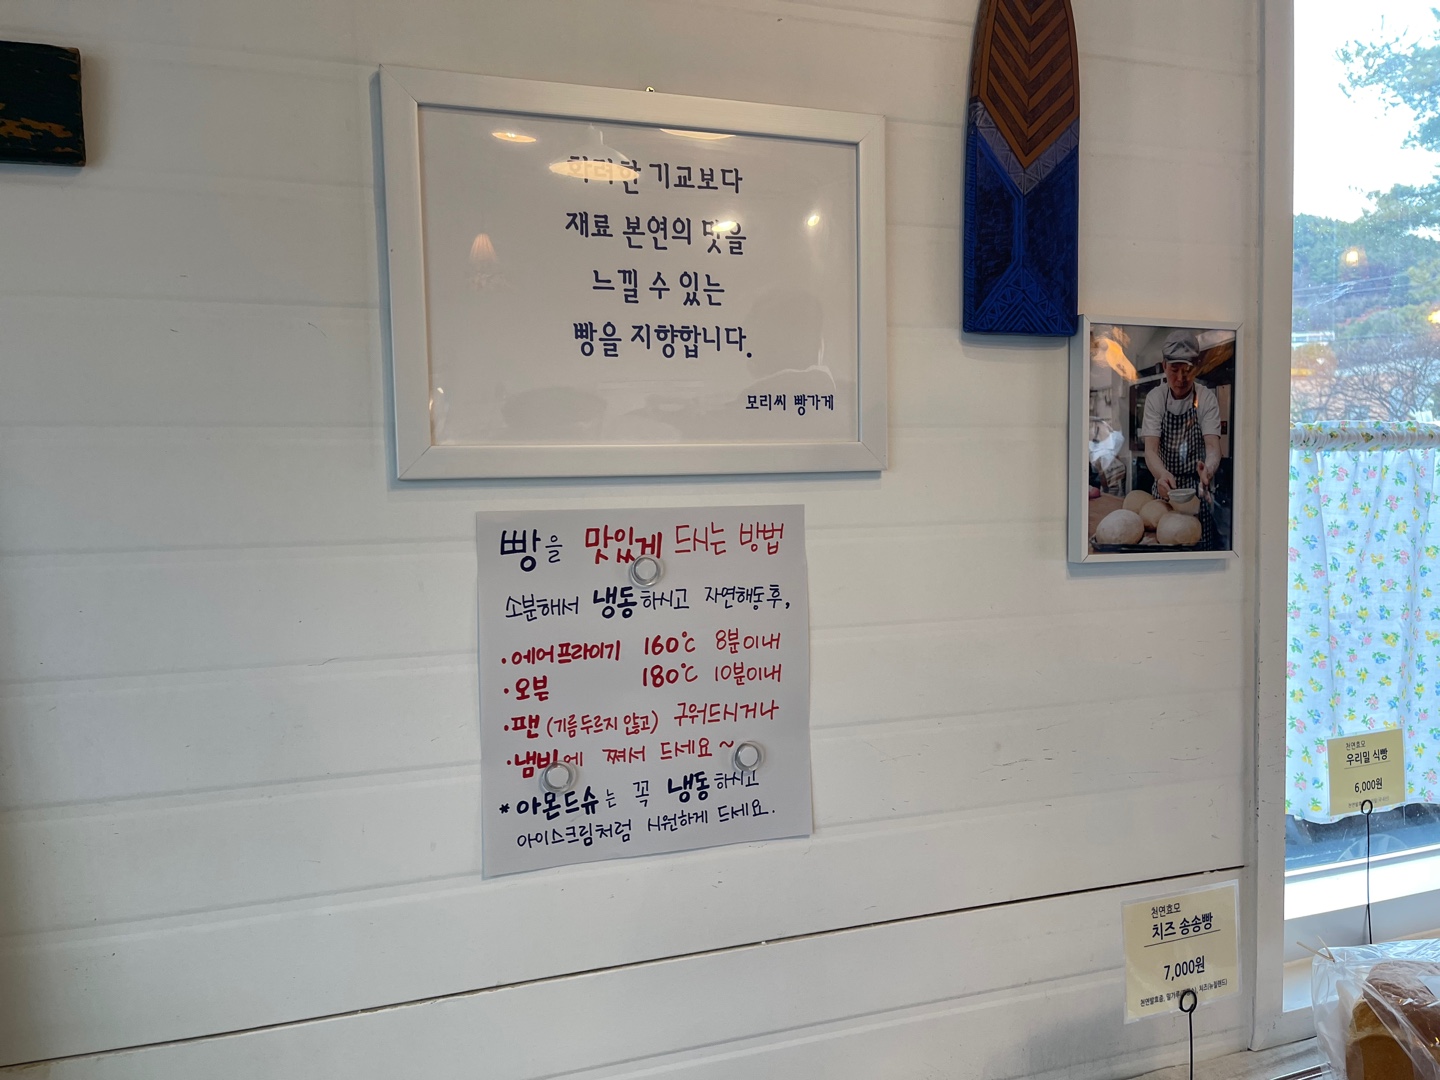 화려한 기교보다
재료 본연의 맛을
느낄 수 있는
빵을 지향합니다.
모리씨 빵가게
빵을 맛있게 드시는 방법
소분해서 냉동하시고 자연해동후,
·에어프라이기 160℃ 8분이내
·오븐 180℃ 10분이내
·팬(기름두르지 않고) 구워드시거나
·냄비에 쪄서 드세요~
*아몬드슈는 꼭 냉동하시고
아이스크림처럼 시원하게 드세요.
천연효모
우리밀 식빵
6,000원
천연효모
치즈 송송빵
7,000원
천연발효종, 치즈(뉴질랜드)